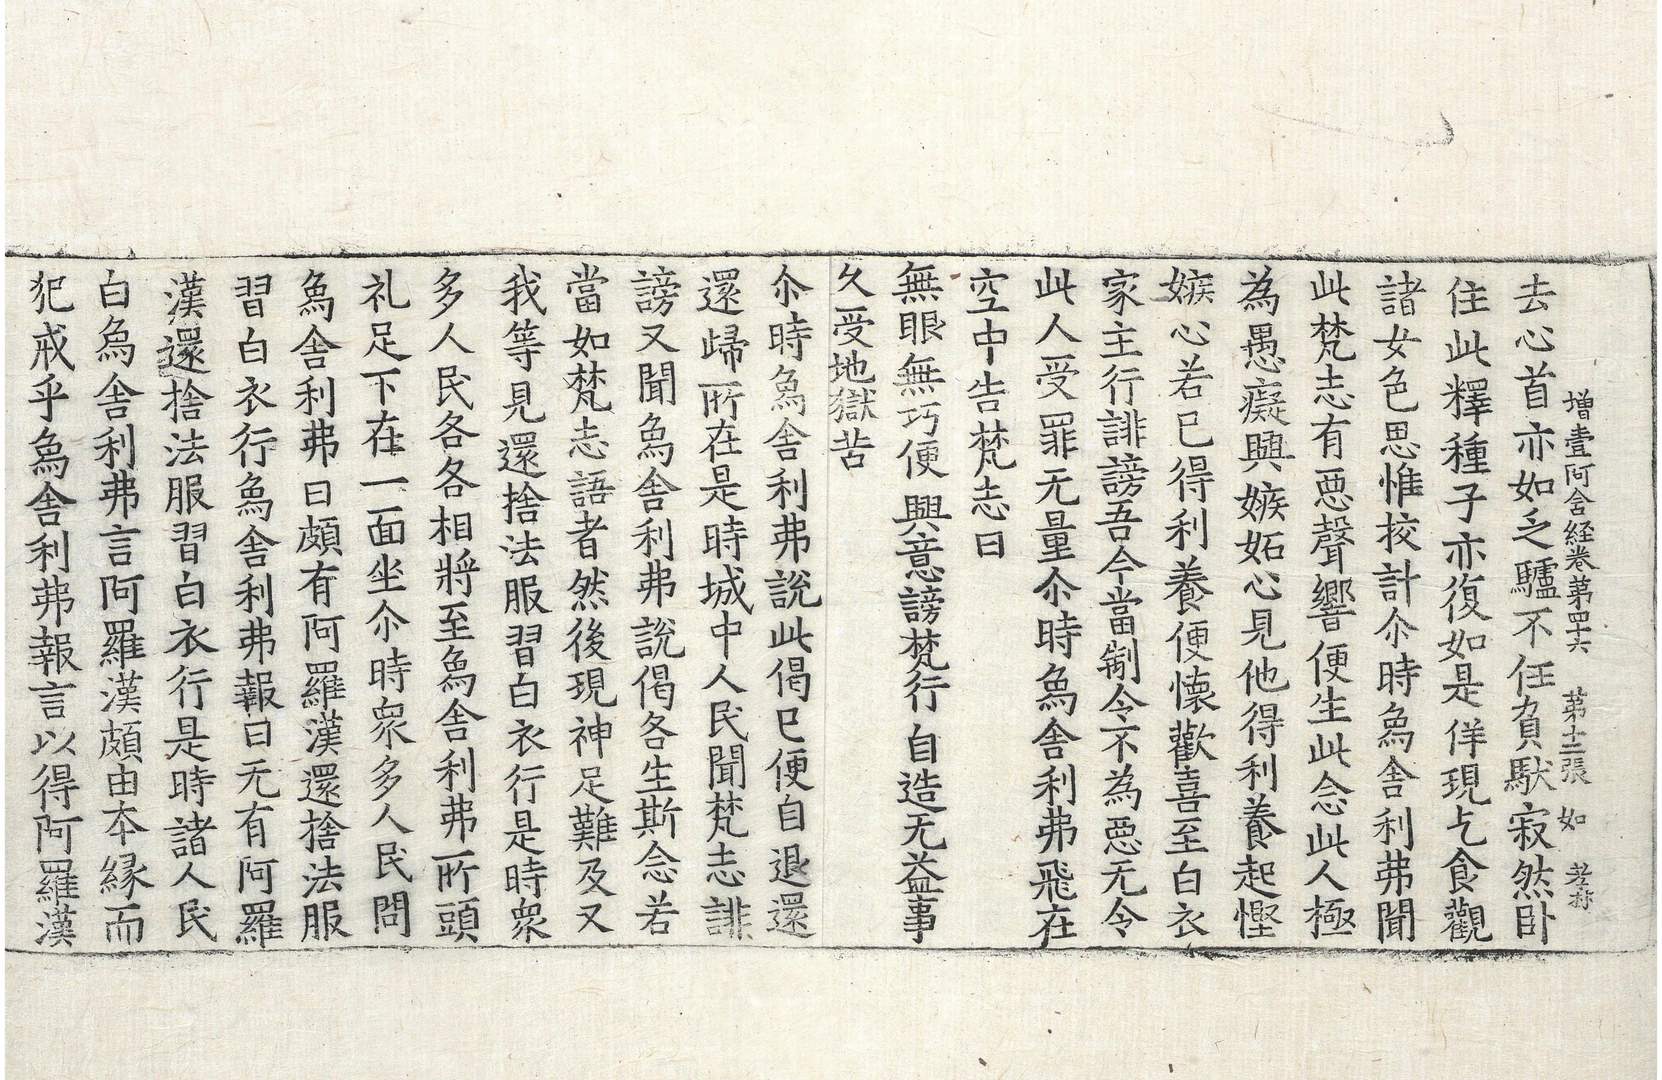 增壹阿含経卷第四十六 第十二張 如
去心首亦如乏驢不任負馱寂然卧
住此釋種子亦復如是佯現乞食觀
諸女色思惟挍計尒時爲舎利弗聞
此梵志有惡聲響便生此念此人極
為愚癡興嫉妬心見他得利養起慳
嫉心若已得利養便懷歡喜至白衣
家主行誹謗吾今當制令不為惡无令
此人受罪无量尒時爲舎利弗飛在
空中告梵志曰
無眼無巧便 興意謗梵行 自造无益事
久受地獄苦
尒時爲舎利弗説此偈已便自退還
還歸所在是時城中人民聞梵志誹
謗又聞爲舎利弗説偈各生斯念若
當如梵志語者然後現神足難及又
我等見還捨法服習白衣行是時衆
多人民各各相將至爲舎利弗所頭
礼足下在一面坐尒時衆多人民問
爲舎利弗曰頗有阿羅漢還捨法服
習白衣行爲舎利弗報曰无有阿羅
漢還捨法服習白衣行是時諸人民
白爲舎利弗言阿羅漢頗由本縁而
犯戒乎爲舎利弗報言以得阿羅漢